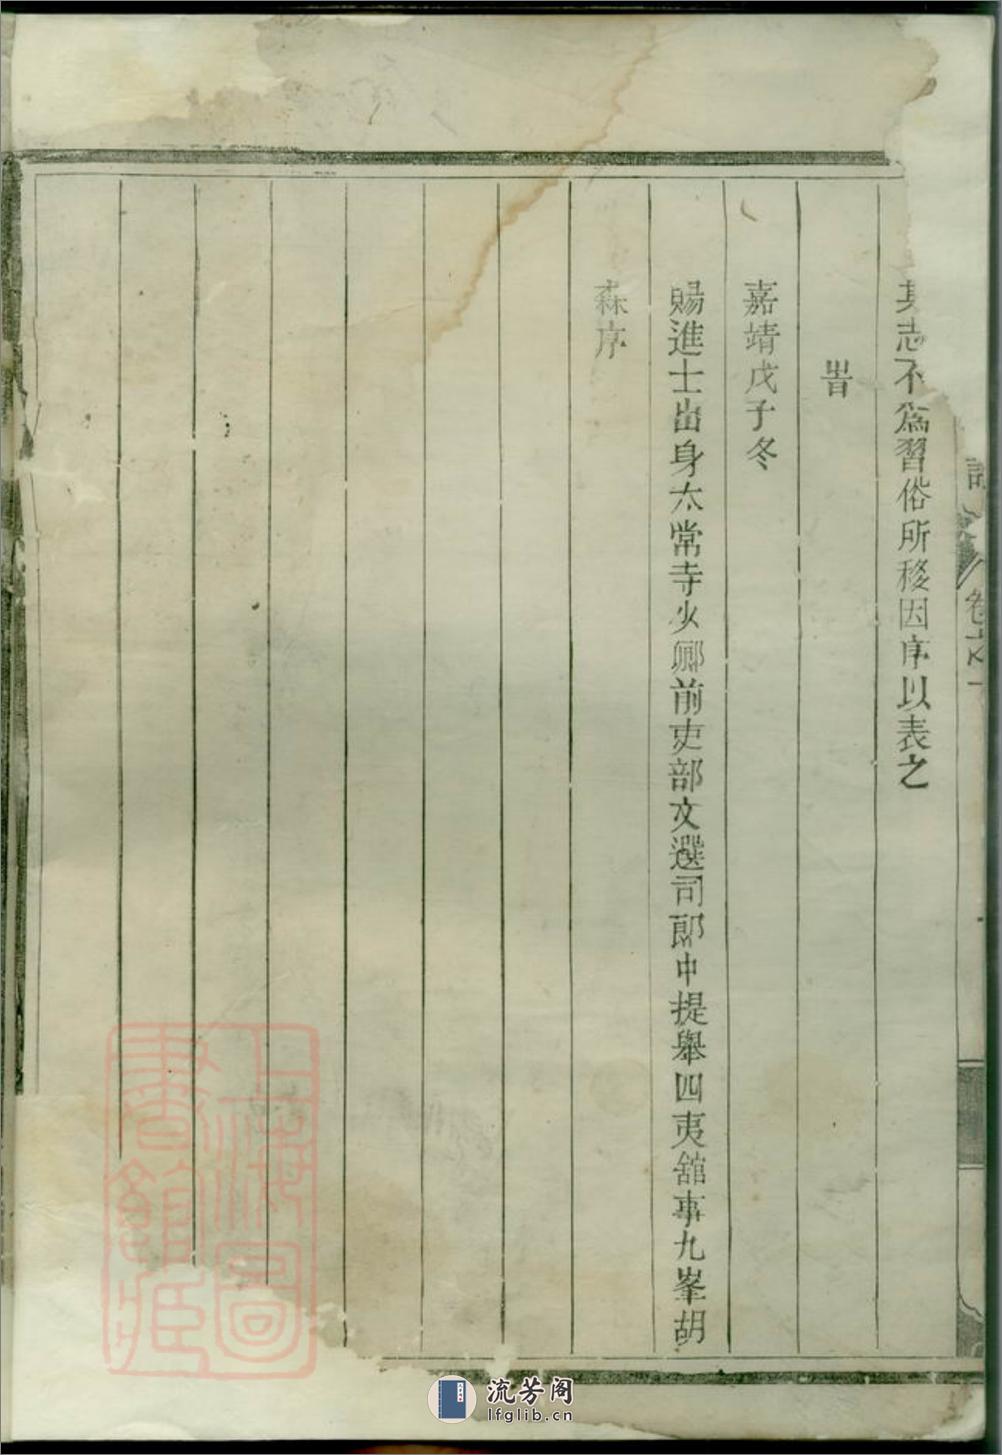 其志不爲習俗所移因序以表之
旹
嘉靖戊子冬
賜進士出身太常寺少卿前吏部文選司郎中提舉四夷舘事九峯胡
森序
卷之一
上海圖
書館藏
流芳阁
lfglib.cn